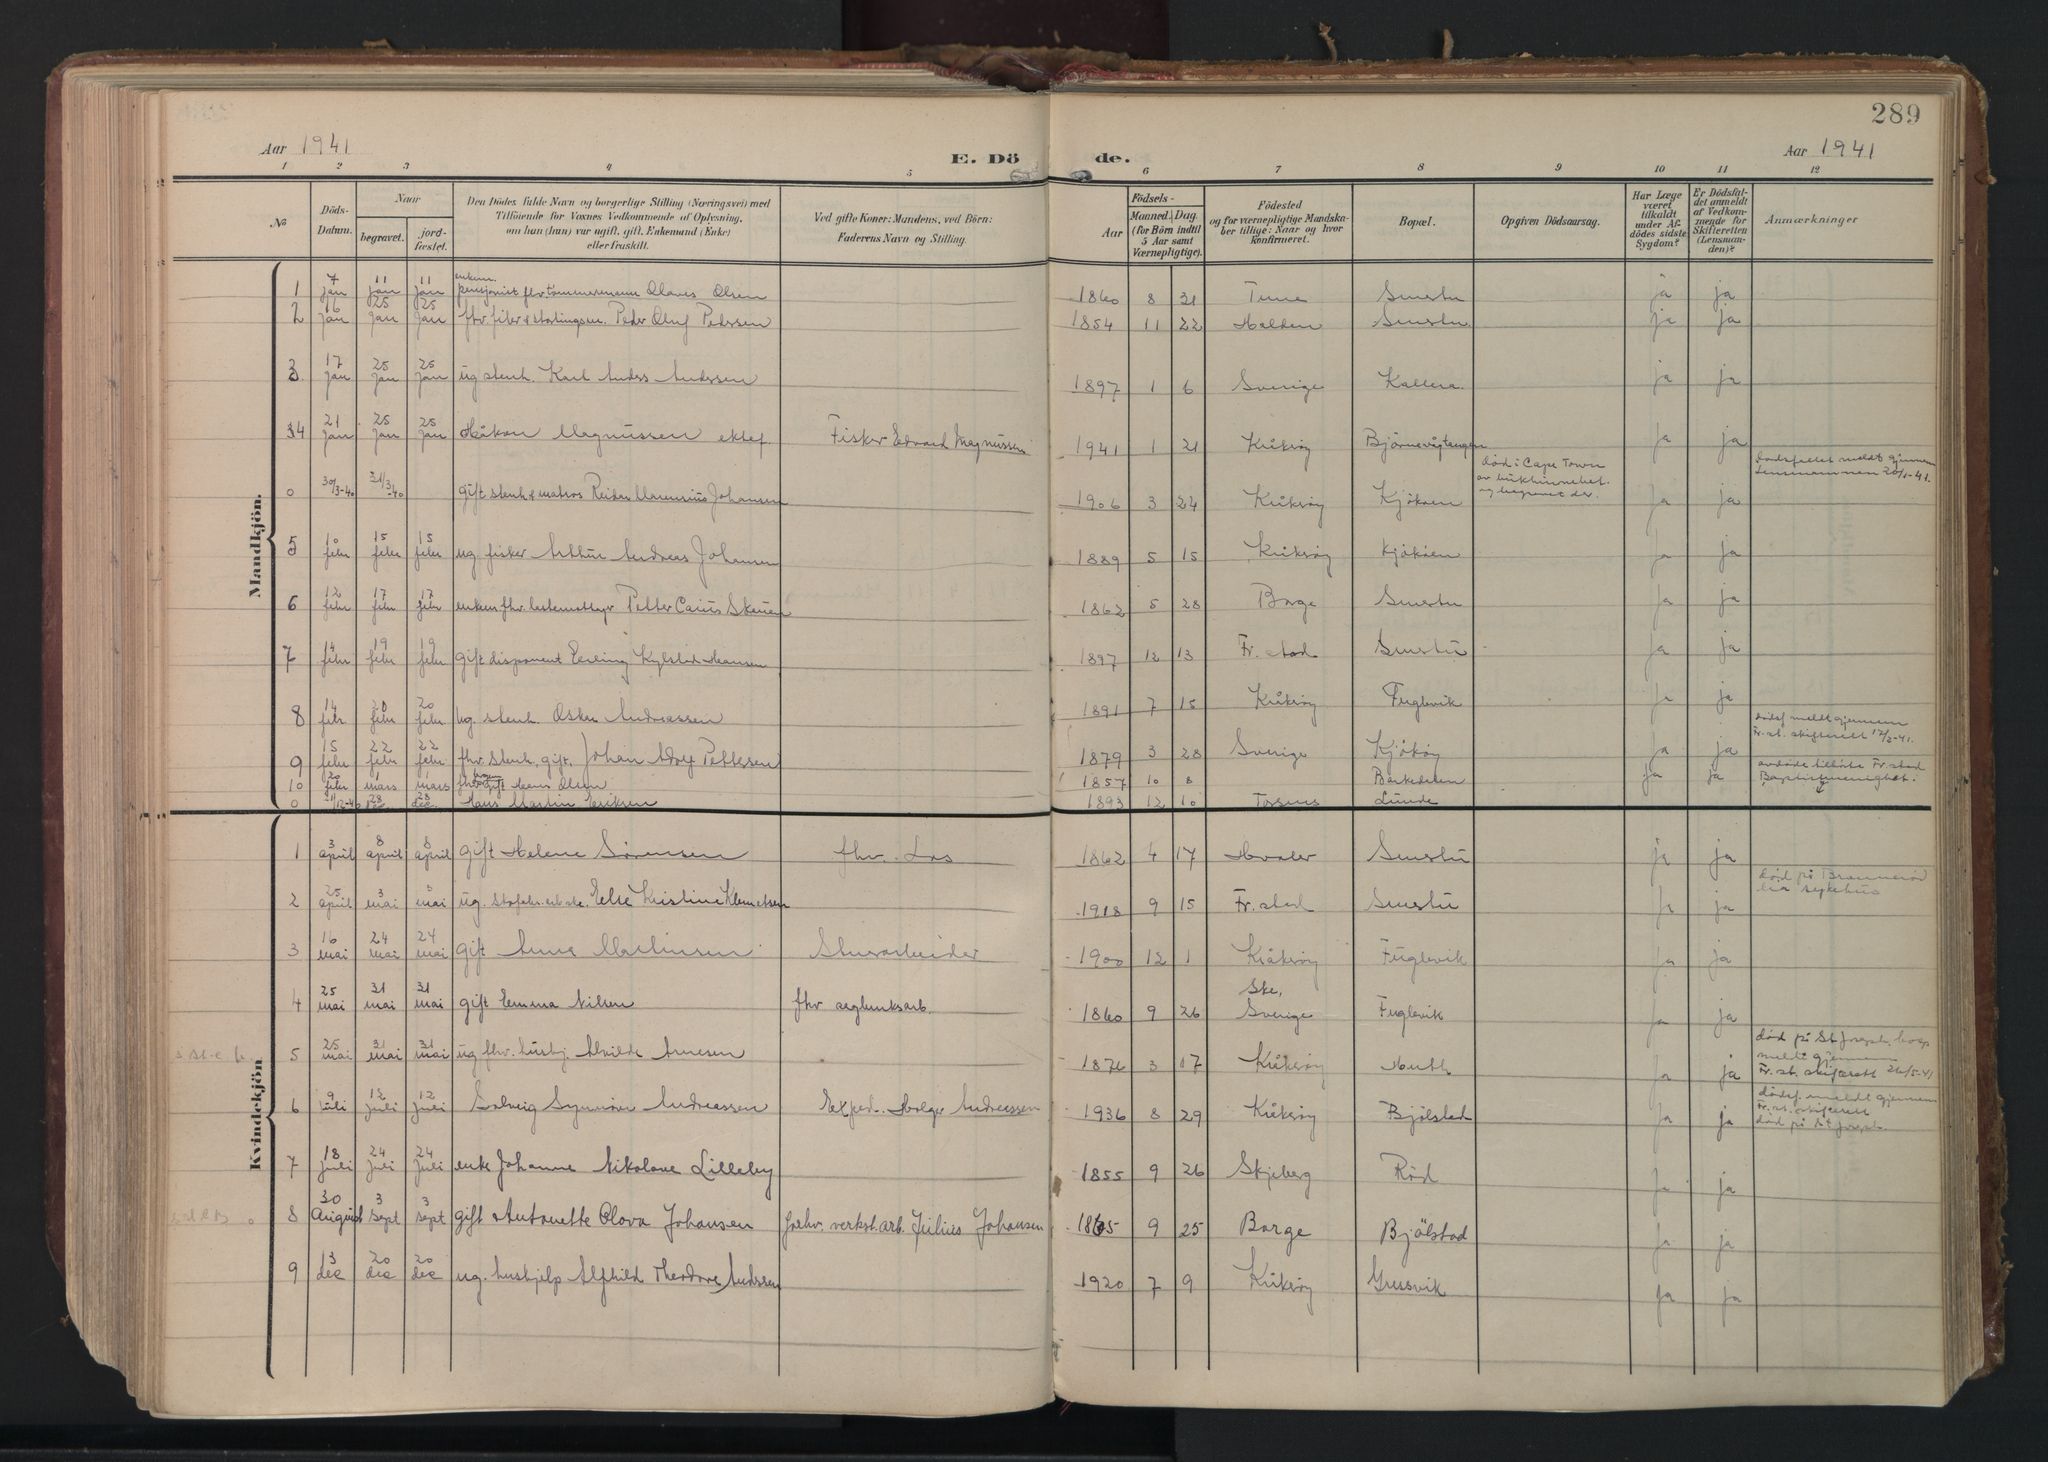 289
Aar 1941 E. Dö de. Aar 1941
1 2 3 4 5 6 7 8 9 10 11 12
No
Döds-Datum.
Naar
begravet.
jord-fæstet.
Den Dödes fulde Navn og borgerlige Stilling (Næringsvei) med
Tilföiende for Voxnes Vedkommende af Oplysning,
om han (hun) var ugift, gift, Enkemand (Enke)
eller fraskilt.
Ved gifte Koner: Mandens, ved Börn:
Faderens Navn og Stilling.
Födsels-
Aar
Maaned. Dag.
(for Börn indtil
5 Aar samt
Værnepligtige).
Födested
og for værnepligtige Mandska-
ber tillige: Naar og hvor
konfirmeret.
Bopæl.
Opgiven Dödsaarsag.
Har Læge
været
tilkaldt
under Af-
dödes sidste
Sygdom?
Er Dödsfal-
det anmeldt
af Vedkom-
mende for
Skifteretten
(Lensman-
den)?
Anmærkninger
Mandkjön.
1 7 jan 11 jan 11 jan enkem. pensjonist fhv tømmermann Olaves Olsen 1860 8 31 Tune Smertu ja ja
2 16 jan 25 jan 25 jan fhv. filer Peder Oluf Pedersen 1854 11 22 Halden Smertu ja ja
3 17 jan 25 jan 25 jan ug stenh. Karl Anders Anderssen 1897 1 6 Sverige Kallera ja ja
34 21 jan 25 jan 25 jan Håkon Magnussen ektef. Fisker Edvard Magnussen 1941 1 21 Kråkrøy Bjørnevågtangen ja ja
0 30/3-40 31/3-40 gift stenh & matros Reidar Marenius Johansen 1906 3 24 Kråkrøy Kjøkøen død i Cape Town av bukhinnebet. og begravet der. ja ja Dødsfallet meldt gjennem Lensmannen 20/1-41.
5 10 febr 15 febr 15 febr ug. fisker Arthur Andreas Johansen 1889 5 15 Kråkrøy Kjøkøen ja ja
6 12 febr 17 febr 17 febr enkem fhv. Petter Carius Skauen 1862 5 28 Borge Smertu ja ja
7 14 febr 19 febr 19 febr gift disponent Erling Kylstad Hansen 1897 12 13 Fr.stad Smertu ja ja
8 14 febr 20 febr 20 febr ug. stenh. Oskar Andreassen 1891 7 15 Kråkrøy Fuglevik ja ja
9 15 febr 22 febr 22 febr fhv. stenh. gift. Johan Adolf Pettersen 1879 3 28 Sverige Kjøkøy ja ja dødsf. meldt gjennem Fr.st. skifterett 17/2-41.
10 20 febr 1 mars 1 mars fhv gift Hans Olsen 1857 10 8 Barkedalen ja ja avdøde tilhørte Fr.stad Baptistmenighet.
0 21/12-40 28 dec 28 dec. Hans Martin Eriksen 1893 12 10 Torsnes Lunde
Kvindekjön
1 3 april 8 april 8 april gift Helene Sørensen fhv. Los 1862 4 17 Hvaler Smertu ja ja
2 25 april 3 mai 3 mai ug. Else Kristine Klemetsen 1918 9 15 Fr.stad Smertu ja ja død på sykehus
3 16 mai 24 mai 24 mai gift Anna Martinsen Stuerarbeider 1900 12 1 Kråkrøy Fuglevik ja ja
4 25 mai 31 mai 31 mai gift Emma Nilsen fhv seglverksarb. 1860 9 26 Ske, Sverige Fuglevik ja ja
5 25 mai 31 mai 31 mai ug fhv. hushj. Alvilde Arnesen 1876 3 07 Kråkrøy ja ja død på St Josephs hosp meldt gjennem Fr.st. skifterett 26/5-41
6 9 juli 12 juli 12 juli Solveig Synnøve Andreassen Exped. Holger Andreassen 1936 8 29 Kråkrøy Bjølstad ja ja dødsf. meldt gjennem Fr.st. skifterett død på St Joseph.
7 18 juli 24 juli 24 juli enke Johanne Nikolave Lilleby 1855 9 26 Skjeberg Rød ja ja
8 30 August 3 sept 3 sept gift Antonette Olava Johansen forhv. verkst.arb. Julius Johansen 1865 9 25 Borge Bjölstad ja ja
9 3 dec 20 dec 20 dec ug. hushjelp Alfhild Theodore Anderssen 1920 7 9 Kråkrøy Gressvik ja ja